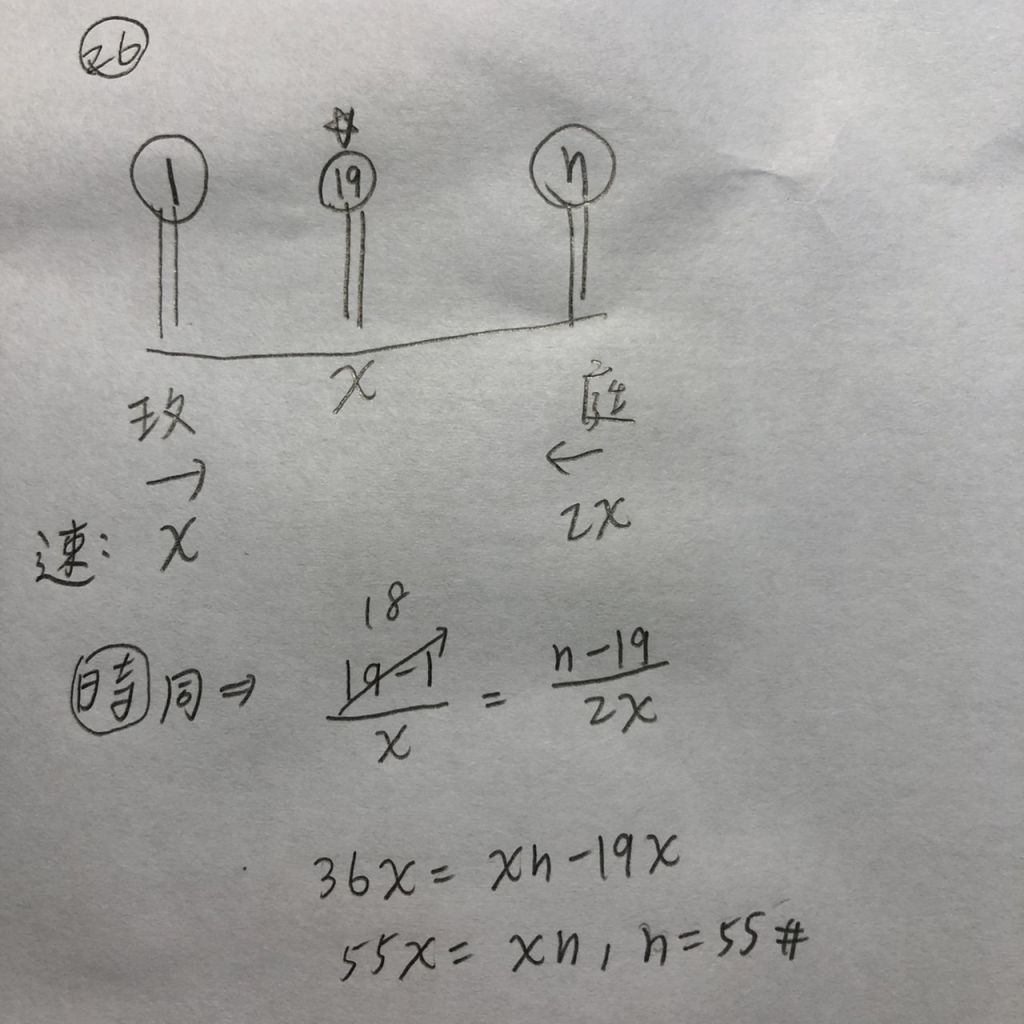 26
1 19 n
x
玫 庭
→ ←
速: x 2x
18
時同⇒ 19-1/x = n-19/2x
36x = xn-19x
55x = xn, n=55#